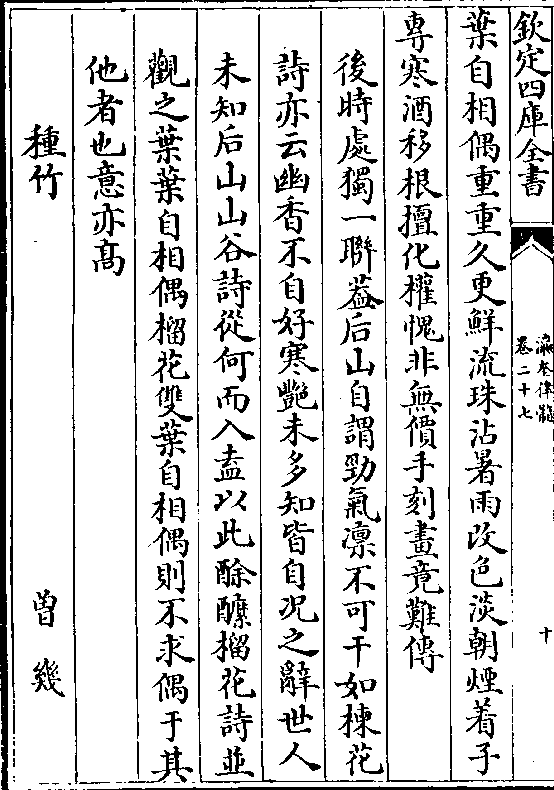 欽定四庫全書
瀛奎律髓
卷二十七
十
葉自相偶重重久更鮮流珠沾暑雨改色淡朝煙着子
専寒酒移根擅化權愧非無價手刻畫竟難傳
後時處獨一聯葢后山自謂勁氣凛不可干如楝花
詩亦云幽香不自好寒艶未多知皆自况之辭世人
未知后山山谷詩從何而入盍以此酴醿榴花詩並
觀之葉葉自相偶榴花雙葉自相偶則不求偶于其
他者也意亦髙
種竹
曾幾